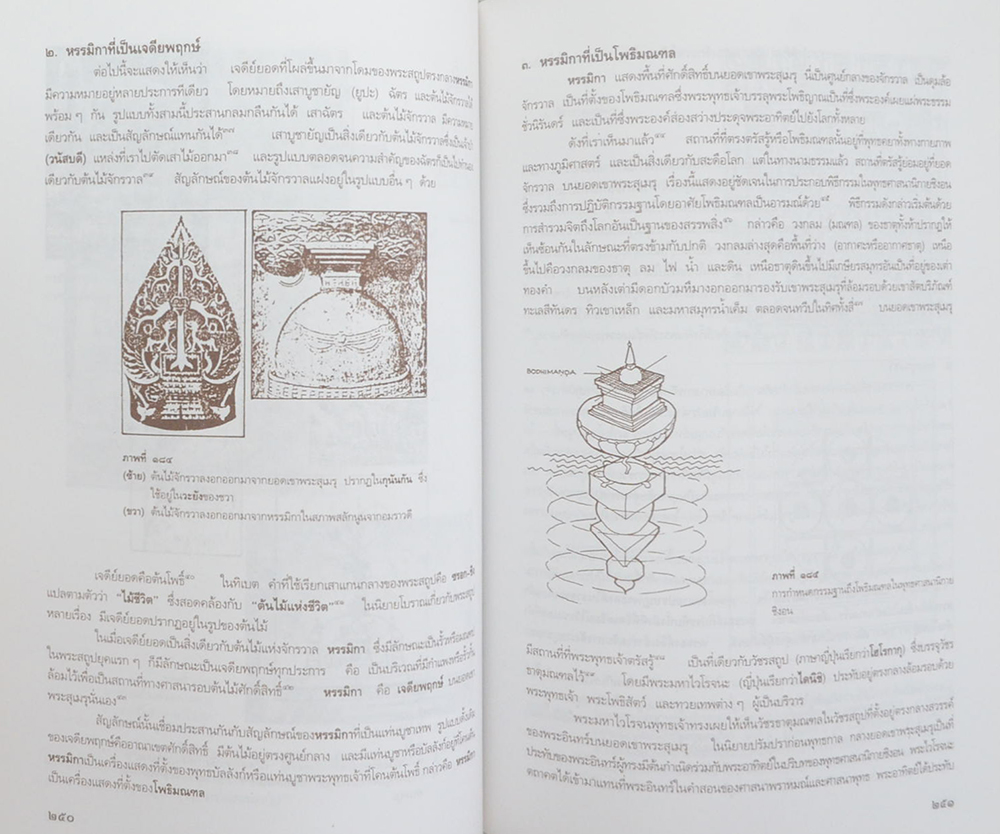 ๒. หรรมิกาที่เป็นเจดียพฤกษ์
ต่อไปนี้จะแสดงให้เห็นว่า เจดีย์ยอดที่โผล่ขึ้นมาจากโดมของพระสถูปตรงกลางหรรมิกา
มีความหมายอยู่หลายประการทีเดียว โดยหมายถึงเสาบูชายัญ (ยูปะ) ฉัตร และต้นไม้จักรวาลไป
พร้อม ๆ กัน รูปแบบทั้งสามนี้ประสานกลมกลืนกันได้ เสาฉัตร และต้นไม้จักรวาล มีความหมาย
เดียวกัน และเป็นสัญลักษณ์แทนกันได้ เสาบูชายัญเป็นสิ่งเดียวกับต้นไม้จักรวาลซึ่งเป็น
(วนัสบดี) แหล่งที่เราไปตัดเสาไม้ออกมา และรูปแบบตลอดจนความสำคัญของฉัตรก็เป็นไปทำนอง
เดียวกับต้นไม้จักรวาล สัญลักษณ์ของต้นไม้จักรวาลแฝงอยู่ในรูปแบบอื่น ๆ ด้วย
ภาพที่ ๑๘๔
(ซ้าย) ต้นไม้จักรวาลงอกออกมาจากยอดเขาพระสุเมรุ ปรากฏในกุนันกัน ซึ่ง
ใช้อยู่ในวะยังของชวา
(ขวา) ต้นไม้จักรวาลงอกออกมาจากหรรมิกาในสภาพสลักนูนจากอมราวดี
เจดีย์ยอดคือต้นโพธิ์ ในทิเบต คำที่ใช้เรียกเสาแกนกลางของพระสถูปคือ
แปลตามตัวว่า "ไม้ชีวิต" ซึ่งสอดคล้องกับ "ต้นไม้แห่งชีวิต" ในนิยายโบราณเกี่ยวกับพระสถูป
หลายเรื่อง มีเจดีย์ยอดปรากฏอยู่ในรูปของต้นไม้
ในเมื่อเจดีย์ยอดเป็นสิ่งเดียวกับต้นไม้แห่งจักรวาล หรรมิกา ซึ่งมีลักษณะเป็นรั้วหรือมณฑป
ในพระสถูปยุคแรก ๆ ก็มีลักษณะเป็นเจดียพฤกษ์ทุกประการ คือ เป็นบริเวณที่มีกำแพงหรือรั้วกั้น
ล้อมไว้เพื่อเป็นสถานที่ทางศาสนารอบต้นไม้ศักดิ์สิทธิ์ หรรมิกา คือ เจดียพฤกษ์ บนยอดเขา
พระสุเมรุนั่นเอง
สัญลักษณ์นั้นเชื่อมประสานกันกับสัญลักษณ์ของหรรมิกาที่เป็นแท่นบูชาเทพ รูปแบบดั้งเดิม
ของเจดียพฤกษ์คืออาณาเขตศักดิ์สิทธิ์ มีต้นไม้อยู่ตรงศูนย์กลาง และมีแท่นบูชาหรือบัลลังก์อยู่ที่โคนต้น
หรรมิกาเป็นเครื่องแสดงที่ตั้งของพุทธบัลลังก์หรือแท่นบูชาพระพุทธเจ้าที่โคนต้นโพธิ์ กล่าวคือ หรรมิกา
เป็นเครื่องแสดงที่ตั้งของโพธิมณฑล
๒๕๐
๓. หรรมิกาที่เป็นโพธิมณฑล
หรรมิกา แสดงพื้นที่ศักดิ์สิทธิ์บนยอดเขาพระสุเมรุ นี่เป็นศูนย์กลางของจักรวาล เป็นดุมล้อ
จักรวาล เป็นที่ตั้งของโพธิมณฑลซึ่งพระพุทธเจ้าบรรลุพระโพธิญาณเป็นที่ซึ่งพระองค์เผยแผ่พระธรรม
ชั่วนิรันดร์ และเป็นที่ซึ่งพระองค์ส่องสว่างประดุจพระอาทิตย์ไปยังโลกทั้งหลาย
ดังที่เราเห็นมาแล้ว สถานที่ที่ทรงตรัสรู้หรือโพธิมณฑลนั้นอยู่ที่พุทธคยาทั้งทางกายภาพ
และทางภูมิศาสตร์ และเป็นสิ่งเดียวกับสะดือโลก แต่ในทางนามธรรมแล้ว สถานที่ตรัสรู้ย่อมอยู่ที่ยอด
จักรวาล บนยอดเขาพระสุเมรุ เรื่องนี้แสดงอยู่ชัดเจนในการประกอบพิธีกรรมในพุทธศาสนานิกายชิงอน
ซึ่งรวมถึงการปฏิบัติกรรมฐานโดยอาศัยโพธิมณฑลเป็นอารมณ์ด้วย พิธีกรรมดังกล่าวเริ่มต้นด้วย
การสำรวมจิตถึงโลกอันเป็นฐานของสรรพสิ่ง กล่าวคือ วงกลม (มณฑล) ของธาตุทั้งห้าปรากฏให้
เห็นซ้อนกันในลักษณะที่ตรงข้ามกับปกติ วงกลมล่างสุดคือพื้นที่ว่าง (อากาศหรืออากาศธาตุ) เหนือ
ขึ้นไปคือวงกลมของธาตุ ลม ไฟ น้ำ และดิน เหนือธาตุดินขึ้นไปมีเกษียรสมุทรอันเป็นที่อยู่ของเต่า
ทองคำ บนหลังเต่ามีดอกบัวมหึมางอกออกมารองรับเขาพระสุเมรุที่ล้อมรอบด้วยเขาสัตบริภัณฑ์
ทะเลสีทันดร ทิวเขาเหล็ก และมหาสมุทรน้ำเค็ม ตลอดจนทวีปในทิศทั้งสี่ บนยอดเขาพระสุเมรุ
BODHIMANDA
ภาพที่ ๑๘๕
การกำหนดกรรมฐานถึงโพธิมณฑลในพุทธศาสนานิกาย
ชิงอน
มีสถานที่ที่พระพุทธเจ้าตรัสรู้ เป็นที่เดียวกับวัชรสถูป (ภาษาญี่ปุ่นเรียกว่าโฮโรกากุ) ซึ่งบรรจุวัชร
ธาตุมณฑลไว้ โดยมีพระมหาไวโรจนะ (ญี่ปุ่นเรียกว่าไดนิชิ) ประทับอยู่ตรงกลางล้อมรอบด้วย
พระพุทธเจ้า พระโพธิสัตว์ และทวยเทพต่าง ๆ ผู้เป็นบริวาร
พระมหาไวโรจนพุทธเจ้าทรงเผยให้เห็นวัชรธาตุมณฑลในวัชรสถูปที่ตั้งอยู่ตรงกลางสวรรค์
ของพระอินทร์บนยอดเขาพระสุเมรุ ในนิยายปรัมปราก่อนพุทธกาล กลางยอดเขาพระสุเมรุเป็นที่
ประทับของพระอินทร์ผู้ทรงมีต้นกำเนิดร่วมกับพระอาทิตย์ในบริบทของพุทธศาสนานิกายชิงอน พระไวโรจนะ
ตถาคตได้เข้ามาแทนที่พระอินทร์ในคำสอนของศาสนาพราหมณ์และศาสนาพุทธ พระอาทิตย์ได้ประทับ
๒๕๑